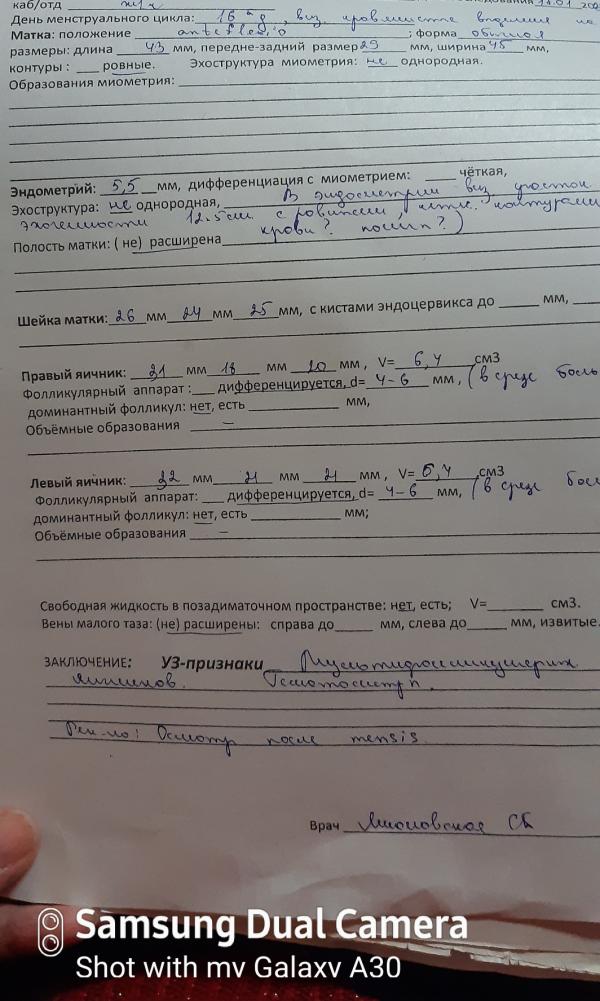 каб/отд ж/к
День менструального цикла: 16 д, виз. кровянисте
Матка: положение anteflexio ; форма обычная
размеры: длина 43 мм, передне-задний размер 29 мм, ширина 45 мм,
контуры : ___ ровные. Эхоструктура миометрия: не однородная.
Образования миометрия:
Эндометрий: 5,5 мм, дифференциация с миометрием: ___ чёткая,
Эхоструктура: не однородная, В эндометрии виз. участок
эхогенности с ровными, контурами
Полость матки: ( не) расширена крови? полип?)
Шейка матки: 26 мм 24 мм 25 мм, с кистами эндоцервикса до ___ мм,
Правый яичник: 31 мм 18 мм 20 мм, V= 6,4 см3
Фолликулярный аппарат: ___ дифференцируется, d= 4-6 мм, (в срезе
доминантный фолликул: нет, есть ___ мм,
Объёмные образования –
Левый яичник: 32 мм 21 мм 21 мм, V= см3
Фолликулярный аппарат: ___ дифференцируется, d= 4-6 мм, (в срезе
доминантный фолликул: нет, есть ___ мм;
Объёмные образования –
Свободная жидкость в позадиматочном пространстве: нет, есть; V=___ см3.
Вены малого таза: (не) расширены: справа до ___ мм, слева до ___ мм, извитые.
ЗАКЛЮЧЕНИЕ: УЗ-признаки Мультифолликулярных
яичников. Гематометр
Рек-но: Осмотр после mensis
Врач
Samsung Dual Camera
Shot with my Galaxy A30